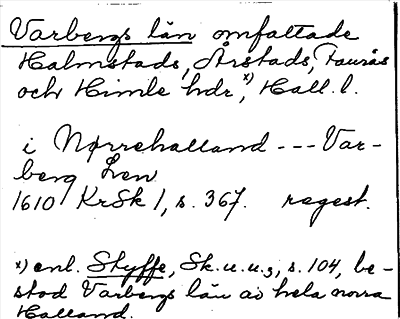 Varbergs län omfattade
Halmstads, Årstads, Faurås
och Himle hdr,x) Hall. l.
i Nørrehalland --- Var-
berg Len
1610 KrSk 1, s. 367. regest.
x) enl. Styffe, Sk. u. u.3, s. 104, be-
stod Varbergs län av hela norra
Halland.